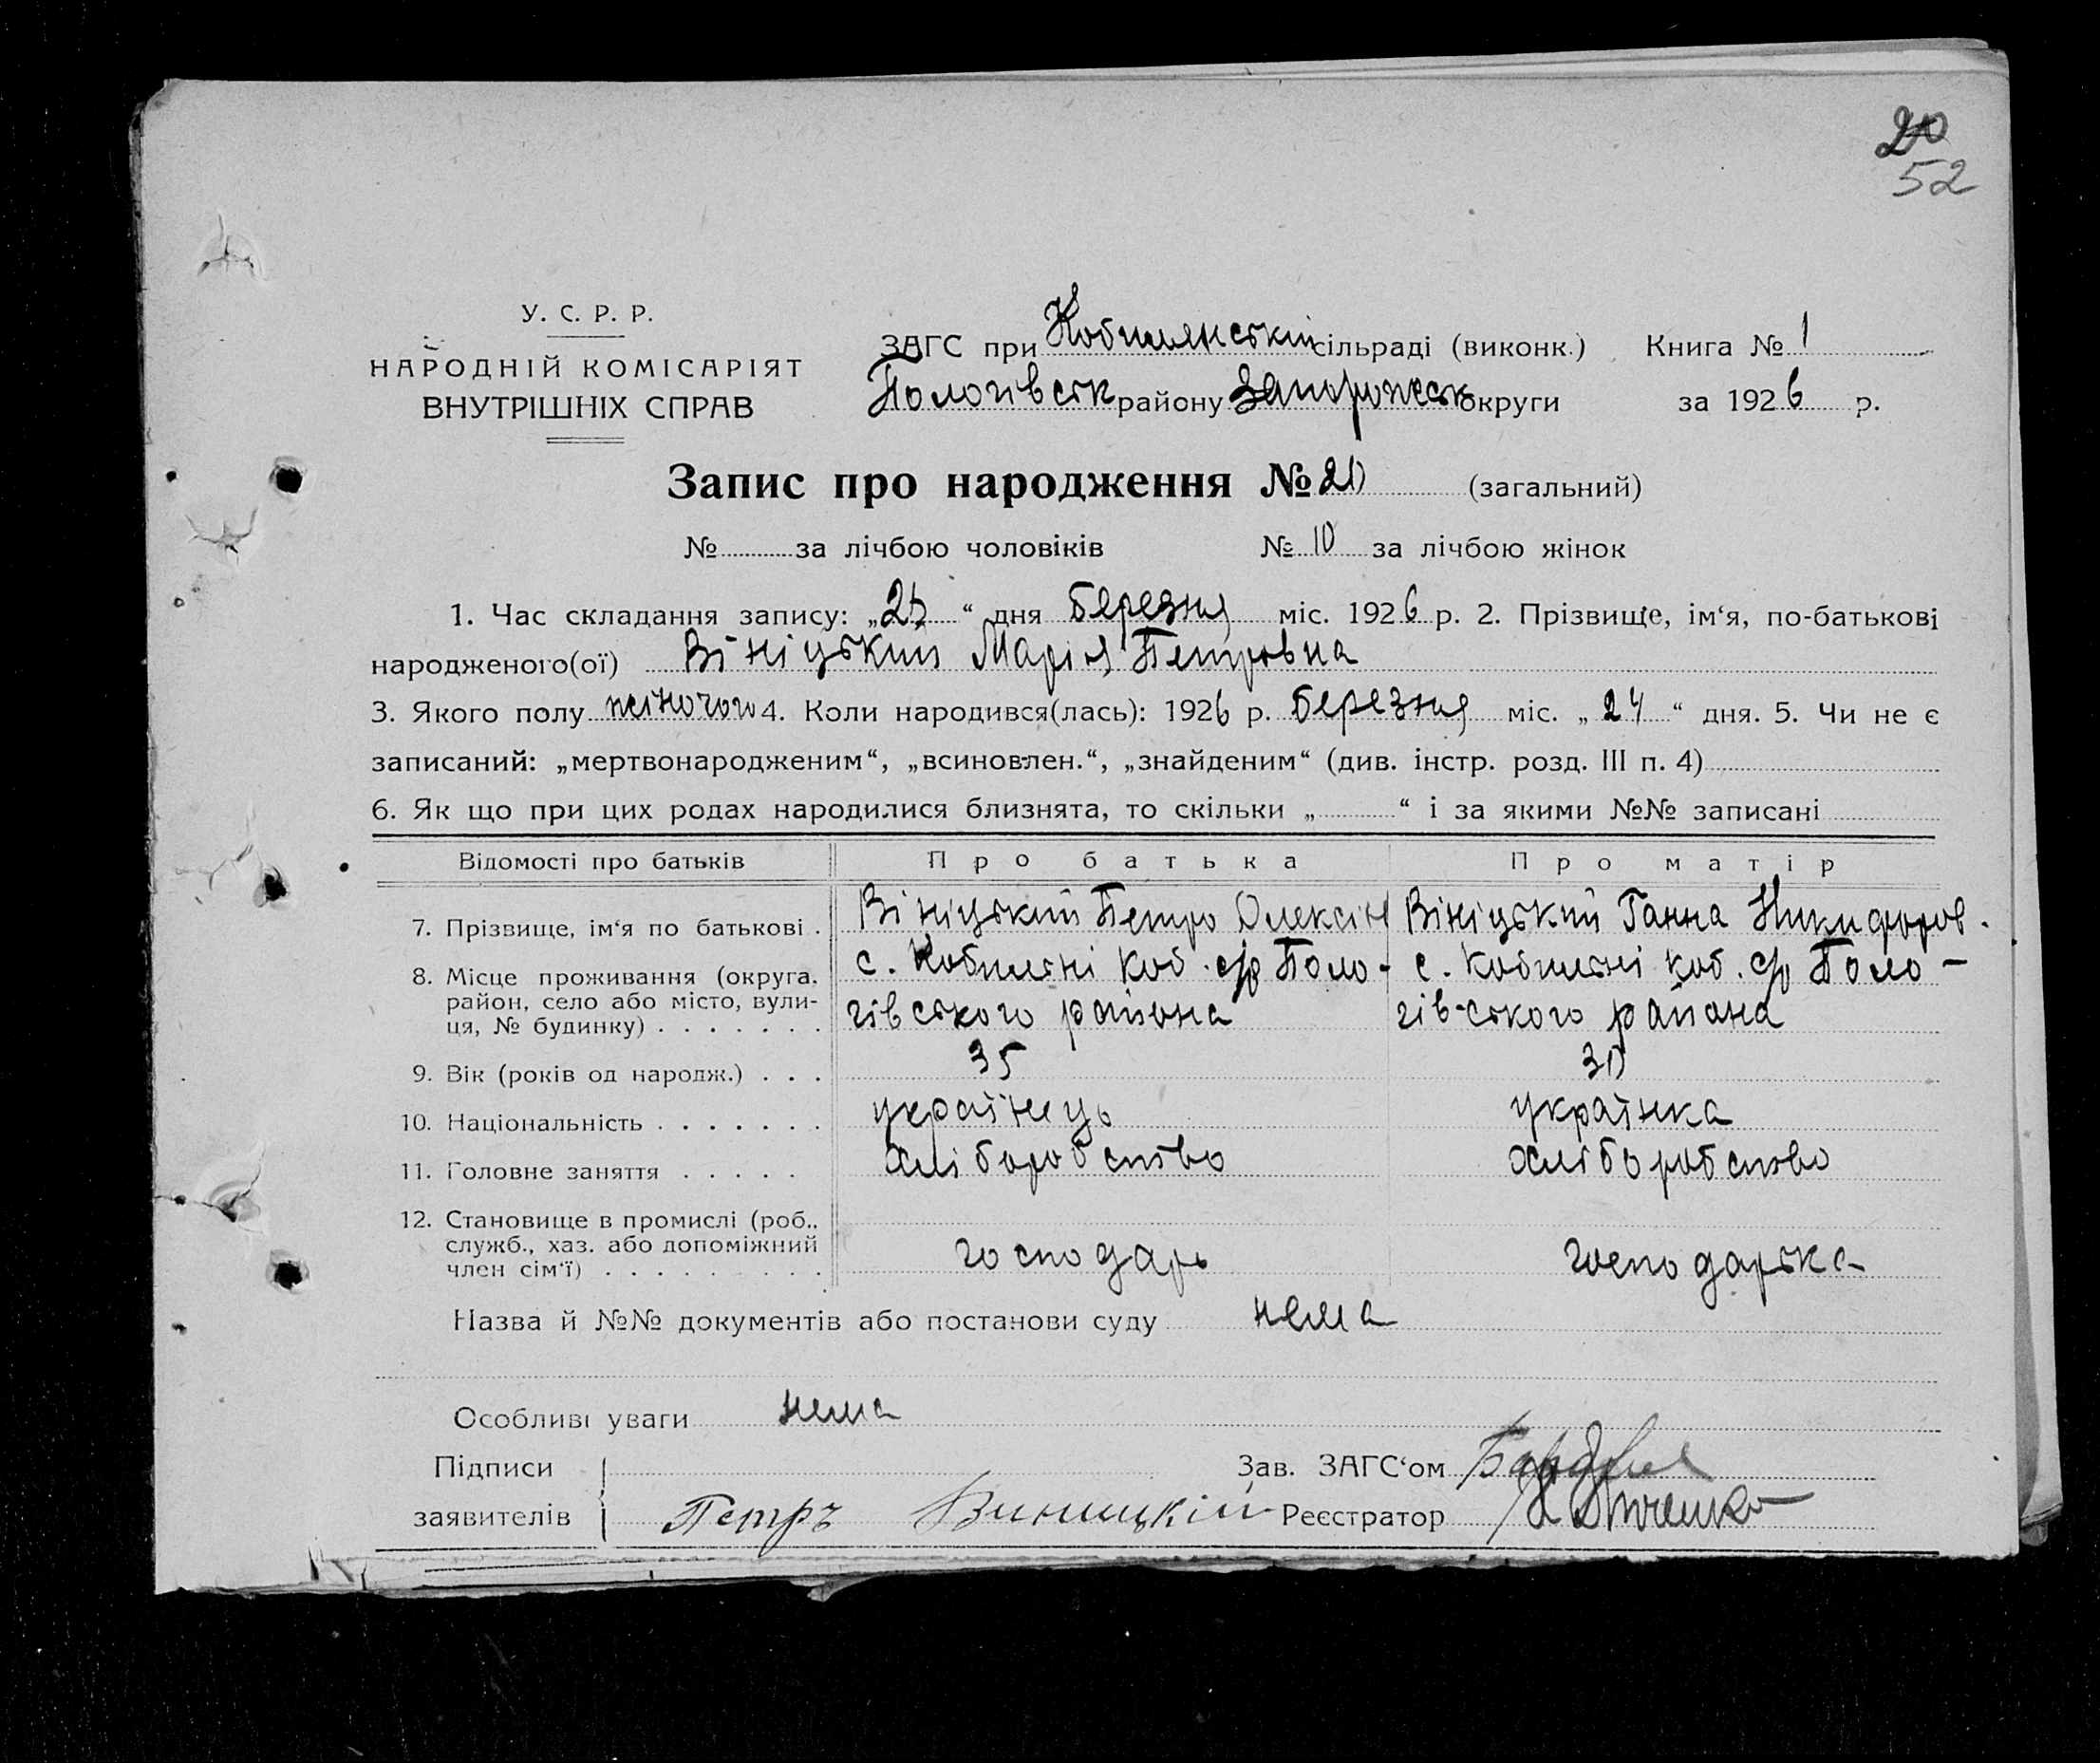 20
52
У. С. Р. Р.
НАРОДНІЙ КОМІСАРІЯТ
ВНУТРІШНІХ СПРАВ
ЗАГС при Кобилянській сільраді (виконк.) Книга № 1
Пологівськ району Запорожськ округи за 1926 р.
Запис про народження № 20 (загальний)
№ за лічбою чоловіків № 10 за лічбою жінок
1. Час складання запису: „25“ дня березня міс. 1926 р. 2. Прізвище, ім‘я, по-батькові
народженого(ої) Вініцький Марія Петровна
3. Якого полу жіночого 4. Коли народився(лась): 1926 р. березня міс. „24“ дня. 5. Чи не є
записаний: „мертвонародженим“, „всиновлен.“, „знайденим“ (див. інстр. розд. III п. 4)
6. Як що при цих родах народилися близнята, то скільки „ “ і за якими №№ записані
Відомості про батьків Про батька Про матір
7. Прізвище, ім‘я по батькові . Вініцький Петро Олексій Вініцький Ганна Никифоров.
8. Місце проживання (округа, с. Кобиляні Коб. с/р Поло- с. Кобиляні коб. с/р Поло-
район, село або місто, вули-
ця, № будинку) . . . . . . . гівського района гівського района
9. Вік (років од народж.) . . . 35 30
10. Національність . . . . . . . українець українка
11. Головне заняття . . . . . хліборобство хліборобство
12. Становище в промислі (роб..
служб., хаз. або допоміжний
член сім‘ї) . . . . . . . . . господарь господарька
Назва й №№ документів або постанови суду нема
Особливі уваги нема
Підписи Зав. ЗАГС‘ом
заявителів Петръ Виницкій Реєстратор